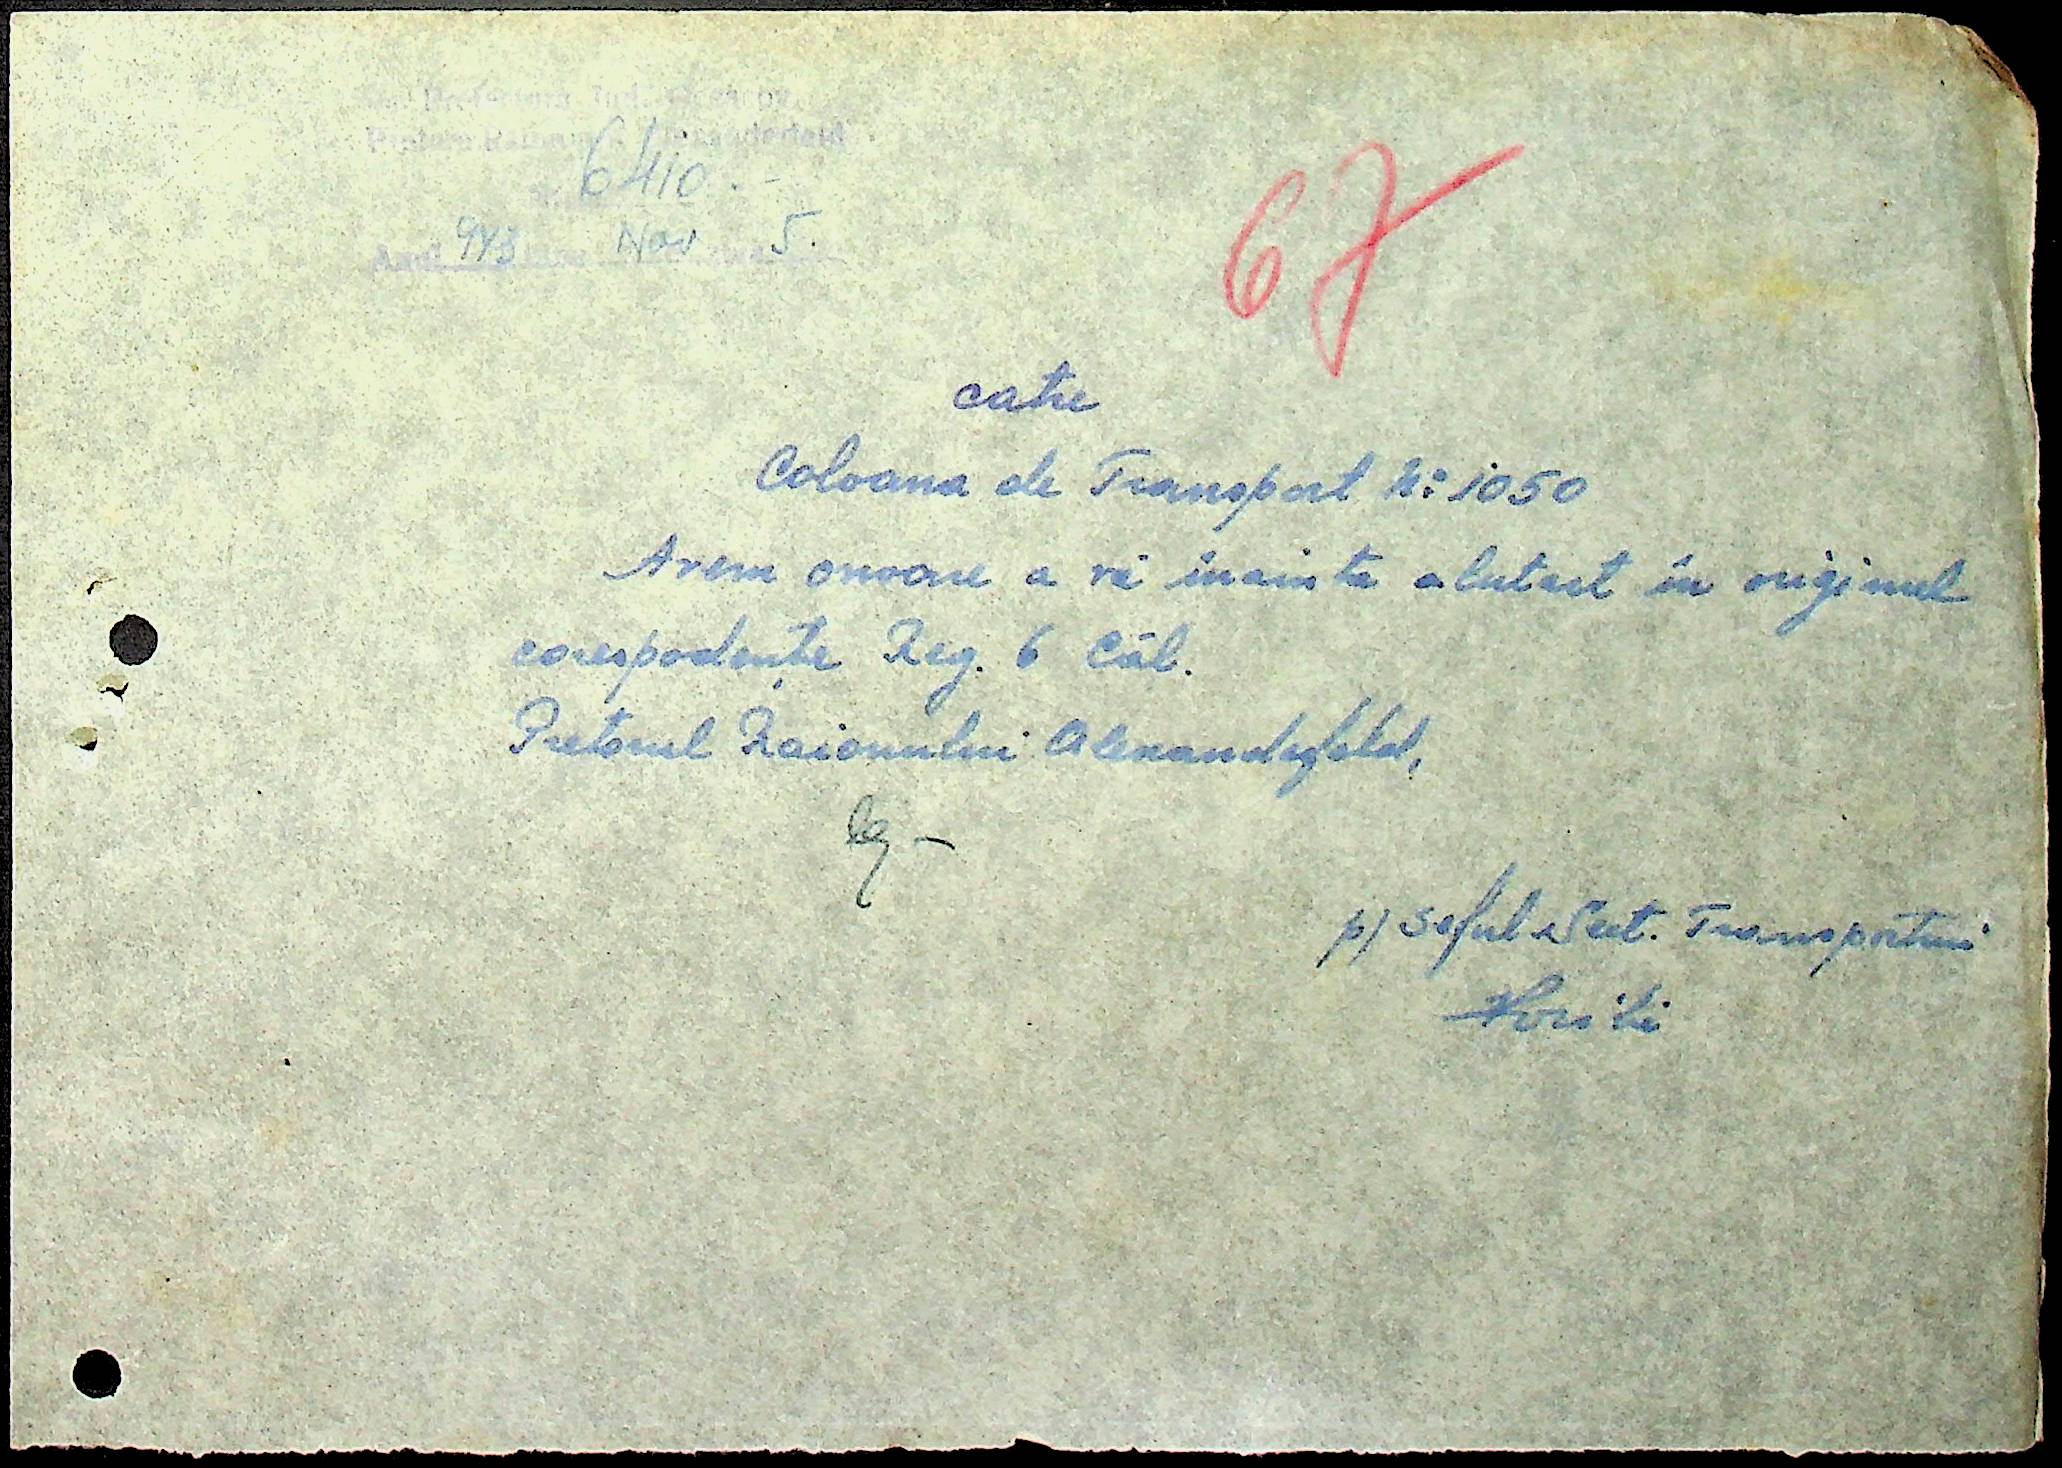 Prefectura Jud.
Pretura Raionului Alexanderfeld
6410.-
Anul 943 luna Nov ziua 5.
67
catre
Coloana de Transport No 1050
Avem onoare a vă înainta alaturat în original
corespodenție Reg. 6 Căl.
Pretorul Raionului Alexanderfeld,
p/ Seful Sect. Transporturi